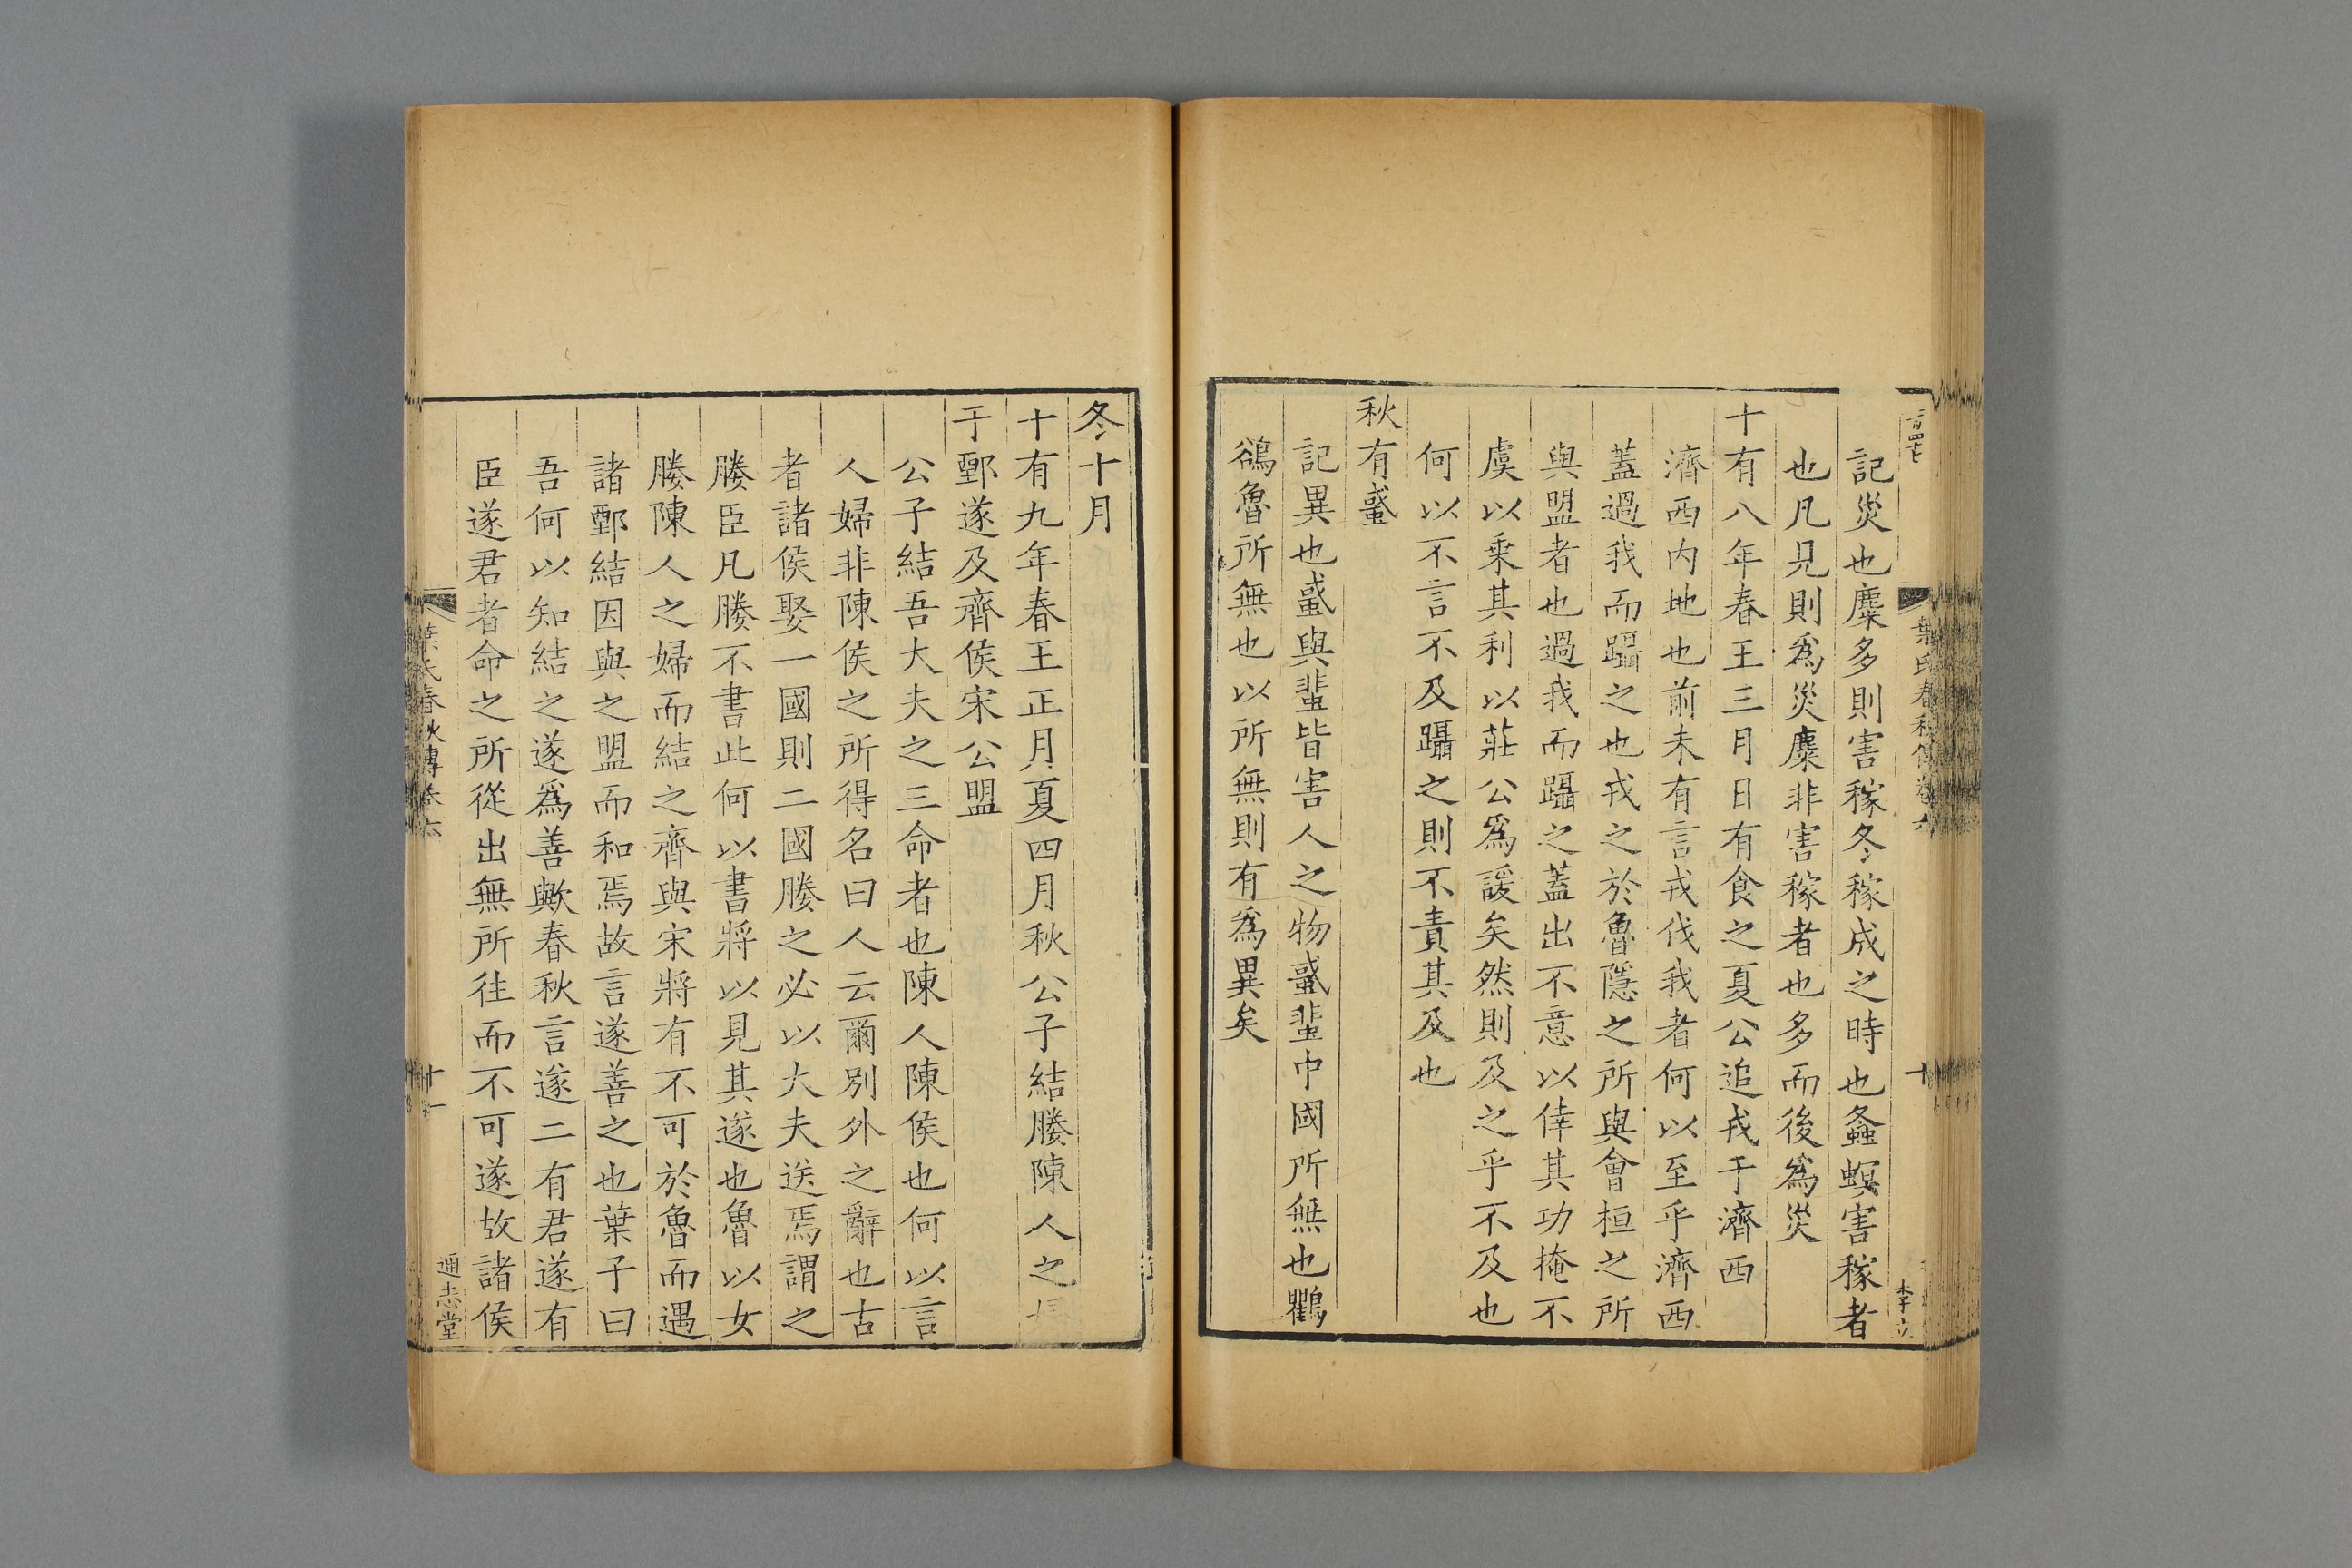 記災也麋多則害稼冬稼成之時也螽螟害稼者
也凡見則爲災麋非害稼者也多而後爲災
十有八年春王三月日有食之夏公追戎于濟西
濟西内地也前未有言戎伐我者何以至乎濟西
蓋過我而躡之也戎之於魯隱之所與會桓之所
與盟者也過我而躡之蓋出不意以倖其功掩不
虞以乗其利以莊公爲諼矣然則及之乎不及也
何以不言不及躡之則不責其及也
秋有蜮
記異也蜮與蜚皆害人之物蜮蜚中國所無也鸜
鵒魯所無也以所無則有爲異矣
葉氏春秋傳卷六
十
李立
冬十月
十有九年春王正月夏四月秋公子結媵陳人之婦
于鄄遂及齊侯宋公盟
公子結吾大夫之三命者也陳人陳侯也何以言
人婦非陳侯之所得名曰人云爾別外之辭也古
者諸侯娶一國則二國媵之必以大夫送焉謂之
媵臣凡媵不書此何以書將以見其遂也魯以女
媵陳人之婦而結之齊與宋將有不可於魯而遇
諸鄄結因與之盟而和焉故言遂善之也葉子曰
吾何以知結之遂爲善歟春秋言遂二有君遂有
臣遂君者命之所從出無所往而不可遂故諸侯
葉氏春秋傳卷六
十一
通志堂